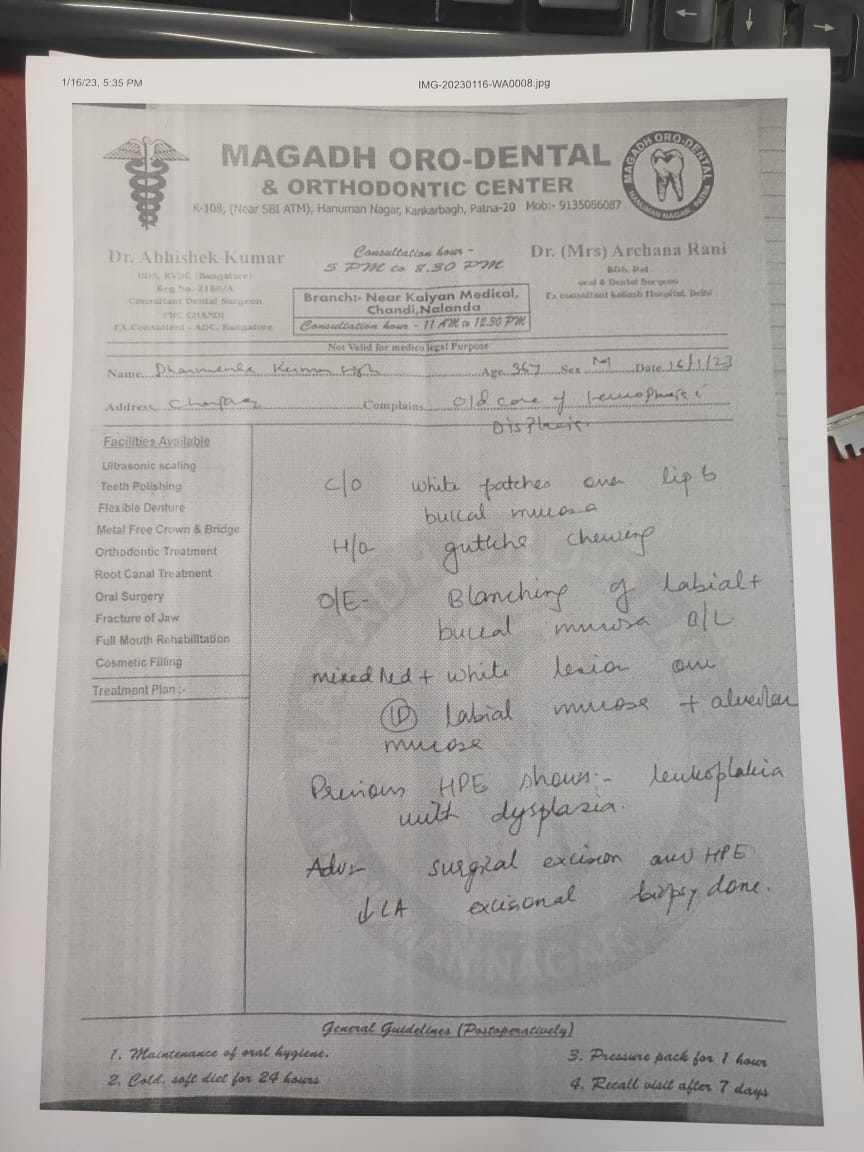 1/16/23, 5:35 PM IMG-20230116-WA0008.jpg
MAGADH ORO-DENTAL
& ORTHODONTIC CENTER
K-108, (Near SBI ATM), Hanuman Nagar, Kankarbagh, Patna-20 Mob:- 9135086087
MAGADH ORO-DENTAL
HANUMAN NAGAR, PATNA
Dr. Abhishek Kumar
BDS, RVDC (Bangalore)
Reg No. 2186/A
Consultant Dental Surgeon
PHC CHANDI
EX.Consultent - ADC, Bangalore
Consultation hour -
5 PM to 8.30 PM
Branch:- Near Kalyan Medical,
Chandi,Nalanda
Consultation hour - 11 AM to 12.30 PM
Dr. (Mrs) Archana Rani
BDS, Pat
oral & Dental Surgeon
Ex consultant kailash Hospital, Delhi
Not Valid for medico legal Purpose
Name Kumar Age 36Y Sex M Date 16/1/23
Address Complains old case of
Facilities Available
Ultrasonic scaling
Teeth Polishing
Flexible Denture
Metal Free Crown & Bridge
Orthodontic Treatment
Root Canal Treatment
Oral Surgery
Fracture of Jaw
Full Mouth Rehabilitation
Cosmetic Filling
Treatment Plan :-
C/O white patches over lip
buccal mucosa
H/o chewing
O/E- Blanching of labial +
buccal mucosa B/L
mixed red + white lesion over
labial mucosa + alveolar
mucosa
Previous HPE shows:- leukoplakia
with dysplasia.
Adv:- surgical excision and HPE
↓ LA excisional biopsy done.
General Guidelines (Postoperatively)
1. Maintenance of oral hygiene.
2. Cold, soft diet for 24 hours
3. Pressure pack for 1 hour
4. Recall visit after 7 days